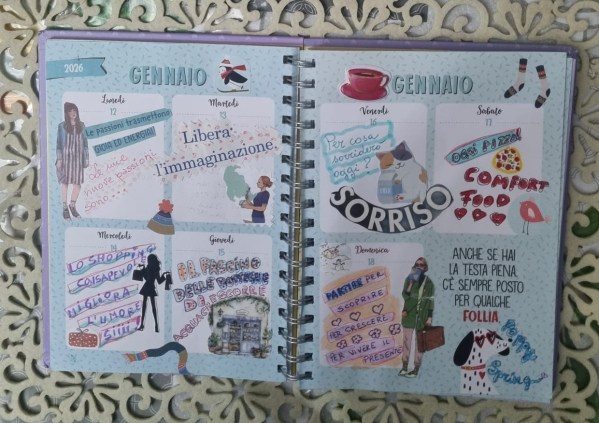 2026
GENNAIO
Lunedì
12
Le passioni trasmettono
GIOIA ED ENERGIA!
le mie
nuove passioni
sono...
Martedì
13
Libera
l'immaginazione
Mercoledì
14
LO SHOPPING
CONSAPEVOLE
MIGLIORA
L'UMORE
SIIII!
Giovedì
15
IL FASCINO
DELLE
DEI PICCOLI
GENNAIO
Venerdì
16
Per cosa
sorridere
oggi?
SORRISO
Sabato
17
OGGI PIZZA!
COMFORT
FOOD
Domenica
18
PARTIRE PER
SCOPRIRE
PER CRESCERE
PER VIVERE IL
PRESENTE
ANCHE SE HAI
LA TESTA PIENA,
C'È SEMPRE POSTO
PER QUALCHE
FOLLIA
Happy
Spring